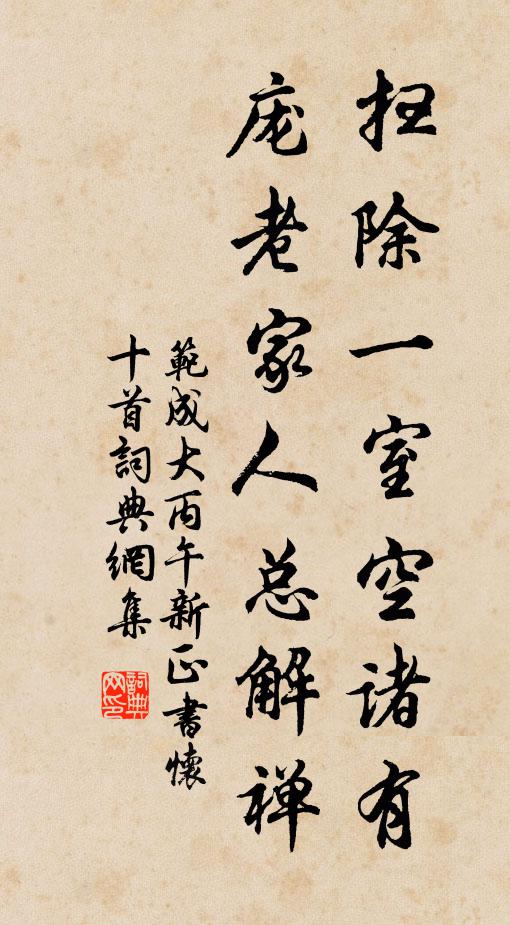 扫除一室空诸有
庞老家人总解禅
範成大丙午新正書懷
十首詞典網集
詞典
网印